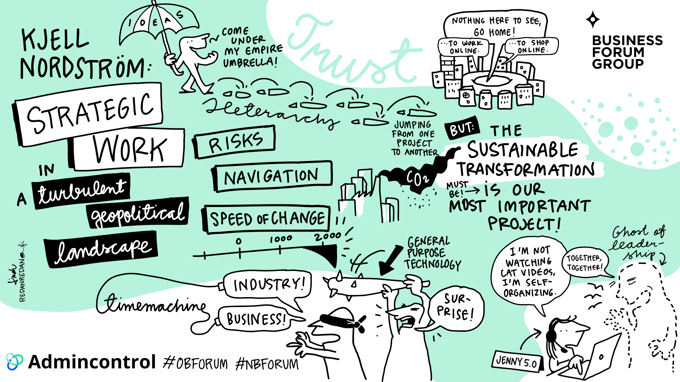 KJELL
NORDSTRÖM:
STRATEGIC
WORK
IN
A turbulent
geopolitical
landscape
IDEAS
COME
UNDER
MY EMPIRE
UMBRELLA!
Trust
Heterarchy
JUMPING
FROM ONE
PROJECT
TO ANOTHER
NOTHING HERE TO SEE,
GO HOME!
...TO WORK
ONLINE.
...TO SHOP
ONLINE.
BUSINESS
FORUM
GROUP
RISKS
NAVIGATION
SPEED OF CHANGE!!
0 1000 2000
CO2
BUT: THE
SUSTAINABLE
TRANSFORMATION
MUST
BE! → IS OUR
MOST IMPORTANT
PROJECT!
GENERAL
PURPOSE
TECHNOLOGY
timemachine
INDUSTRY!
BUSINESS!
SUR-
PRISE!
I'M NOT
WATCHING
CAT VIDEOS,
I'M SELF-
ORGANIZING.
TOGETHER,
TOGETHER!
Ghost of
leader-
ship
JENNY 5.0
Admincontrol #OBFORUM #NBFORUM